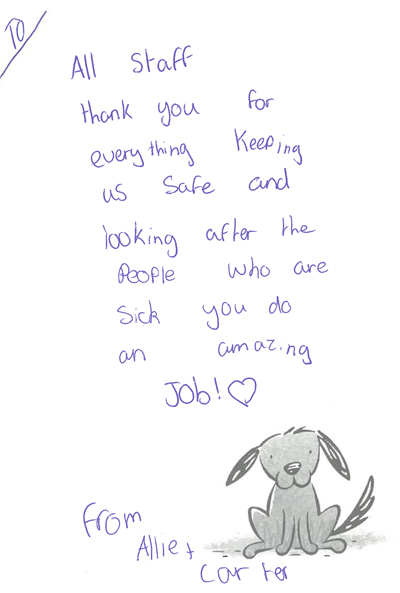 TO
All Staff
thank you for
everything Keeping
us Safe and
looking after the
People who are
Sick you do
an amazing
Job! ♡
From
Allie +
Carter